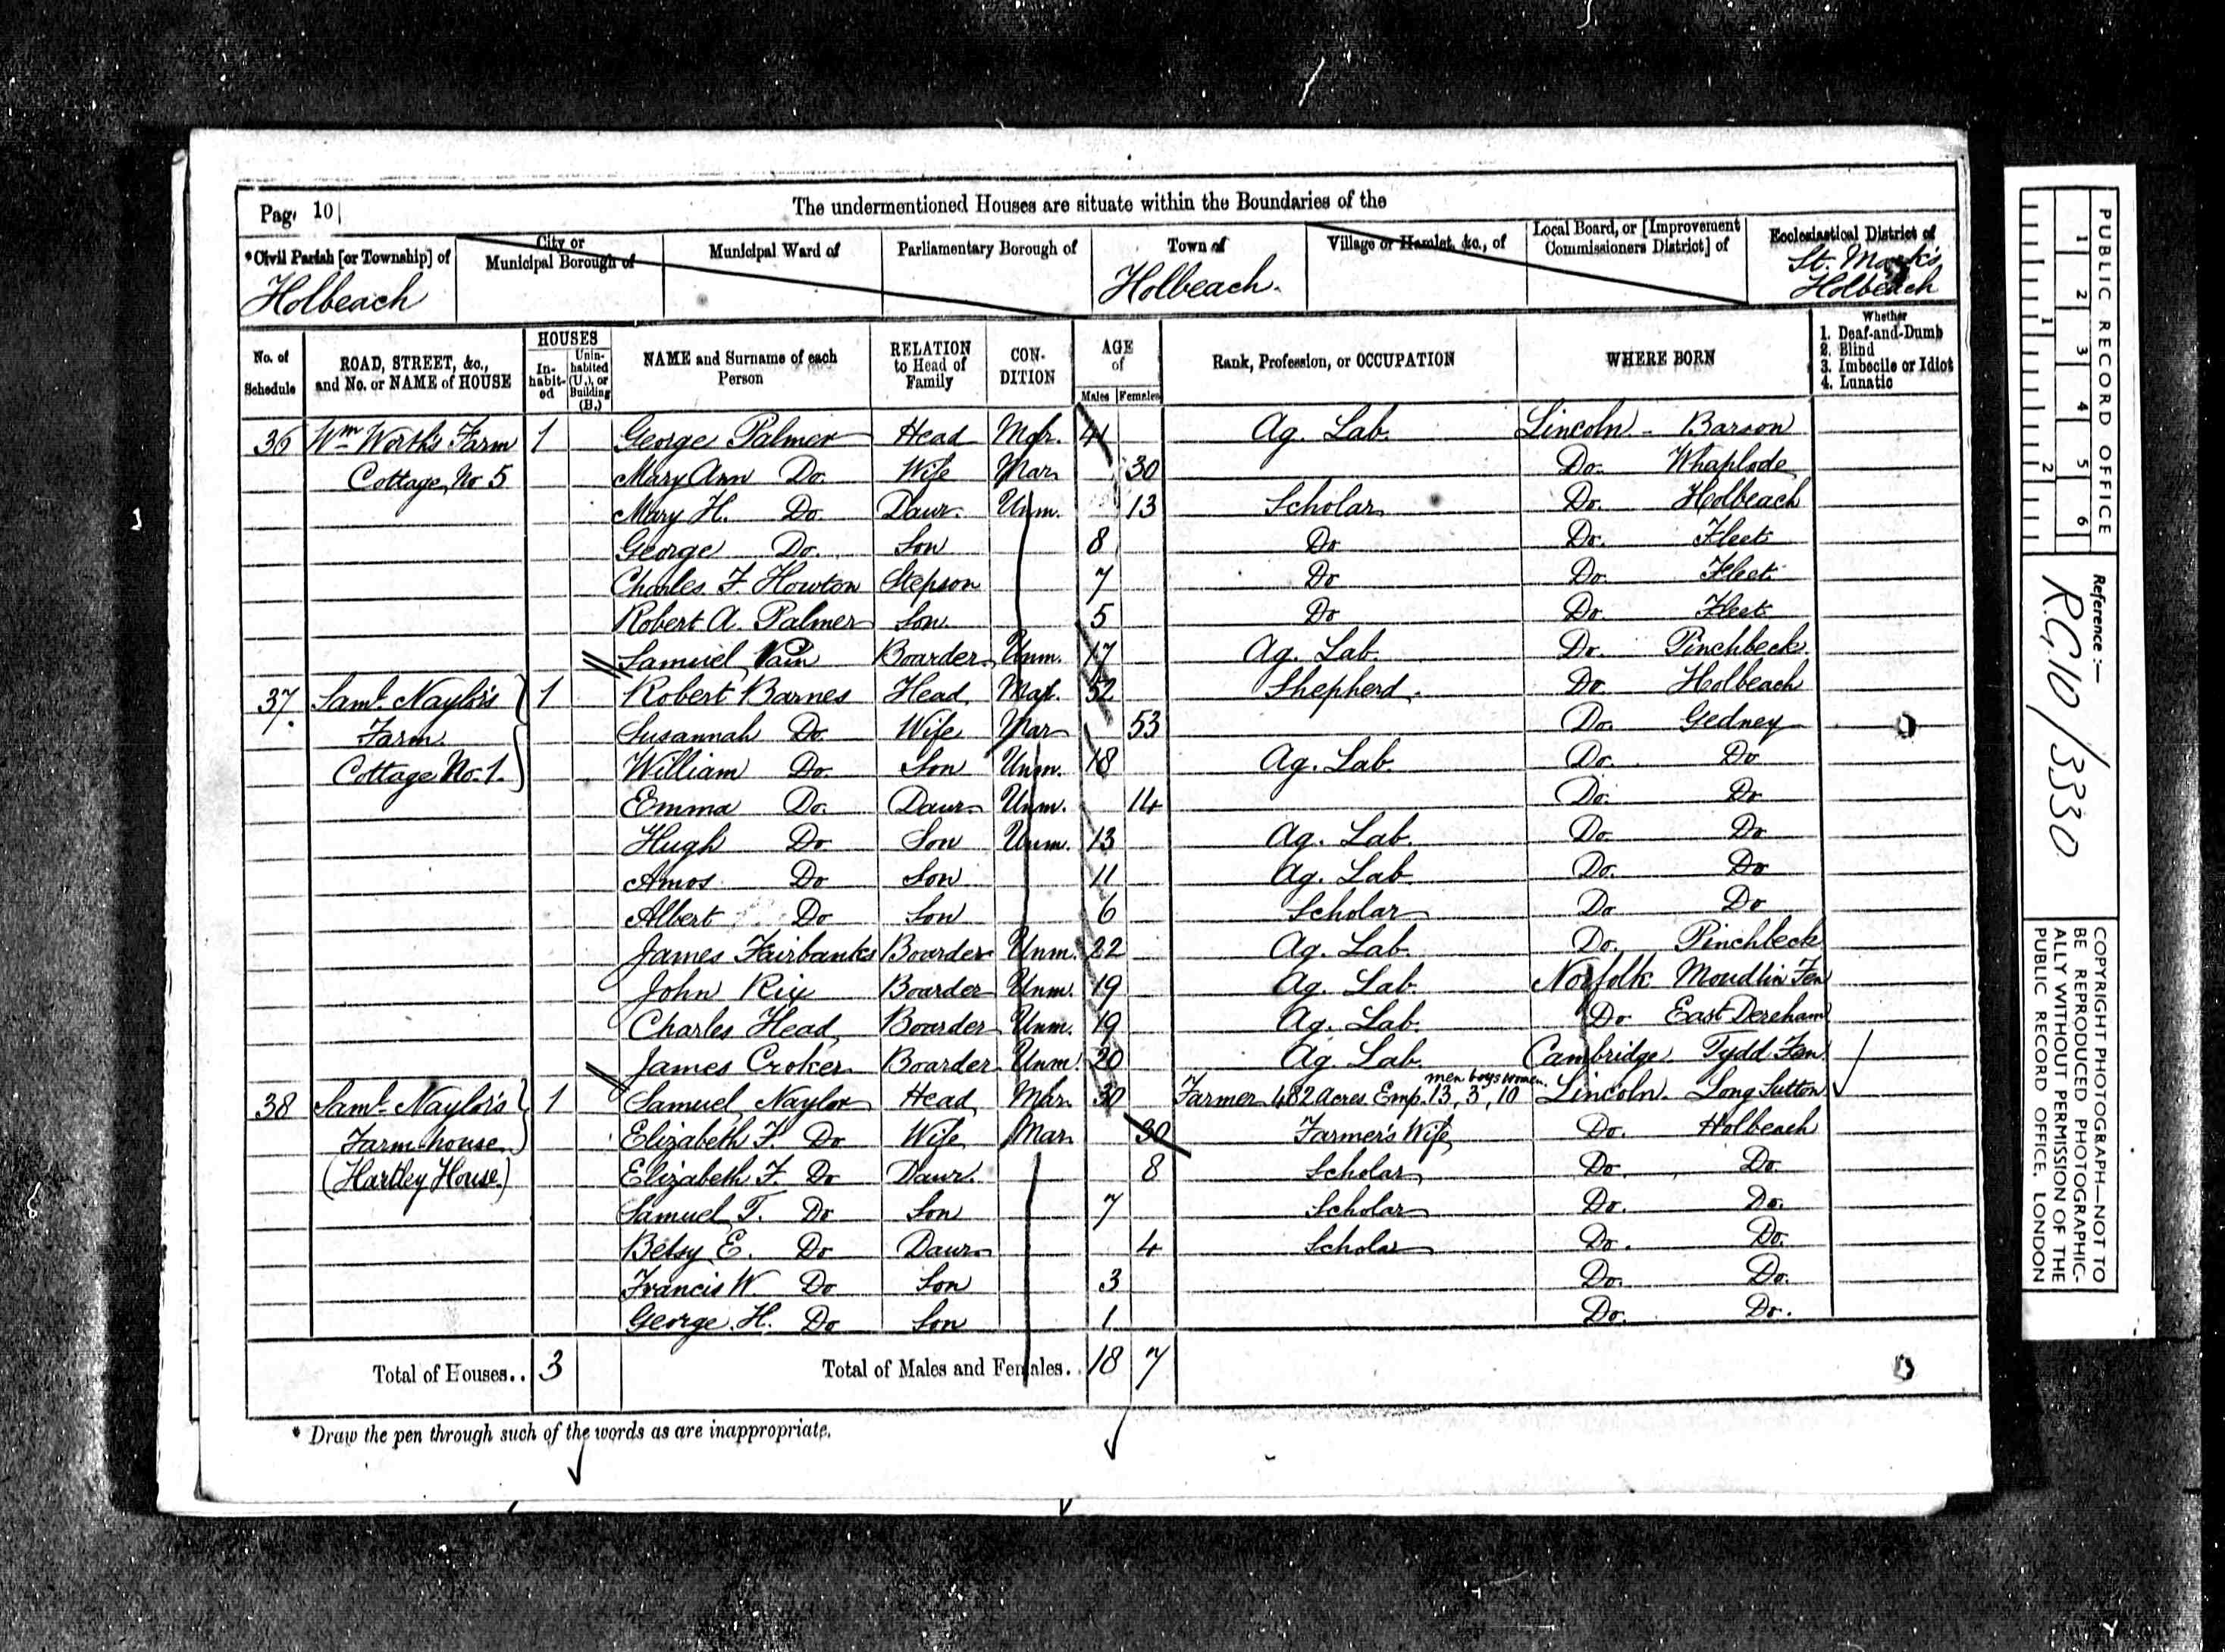 Page 10
The undermentioned Houses are situate within the Boundaries of the
*Civil Parish [or Township] of
Holbeach
City or Municipal Borough of
Municipal Ward of
Parliamentary Borough of
Town of
Holbeach.
Village or Hamlet, &c., of
Local Board, or [Improvement Commissioners District] of
Ecclesiastical District of
St. Mark's Holbeach
No. of Schedule
ROAD, STREET, &c., and No. or NAME of HOUSE
HOUSES
In-habit-ed
Unin-habited (U.), or Building (B.)
NAME and Surname of each Person
RELATION to Head of Family
CON-DITION
AGE of
Males Females
Rank, Profession, or OCCUPATION
WHERE BORN
Whether
1. Deaf-and-Dumb
2. Blind
3. Imbecile or Idiot
4. Lunatic
36 Wm Worth's Farm 1 George Palmer Head Mar. 41 Ag. Lab. Lincoln - Barson
Cottage, No 5 Mary Ann Do. Wife Mar 30 Do. Whaplode
Mary H. Do. Daur. Unm. 13 Scholar Do. Holbeach
George Do. Son 8 Do Do. Fleet
Charles F. Howton Stepson 7 Do Do. Fleet
Robert A. Palmer Son 5 Do Do. Fleet
Samuel Pain Boarder Unm. 17 Ag. Lab. Do. Pinchbeck
37. Saml. Naylor's 1 Robert Barnes Head Mar. 52 Shepherd Do. Holbeach
Farm Susannah Do. Wife Mar 53 Do. Gedney
Cottage No. 1. William Do. Son Unm. 18 Ag. Lab. Do. Do
Emma Do. Daur Unm. 14 Do. Do
Hugh Do Son Unm. 13 Ag. Lab. Do. Do
Amos Do Son 11 Ag. Lab. Do. Do
Albert Do Son 6 Scholar Do Do
James Fairbanks Boarder Unm. 22 Ag. Lab. Do. Pinchbeck
John Rix Boarder Unm. 19 Ag. Lab. Norfolk Moudlin Fen
Charles Head Boarder Unm. 19 Ag. Lab. Do East Dereham
James Croker Boarder Unm. 20 Ag. Lab. Cambridge. Tydd Fen.
38 Saml. Naylor's 1 Samuel Naylor Head Mar. 30 Farmer 482 Acres Emp. 13, 3, 10 men boys women. Lincoln. Long Sutton
Farm house Elizabeth F. Do Wife Mar. 30 Farmer's Wife Do. Holbeach
(Hartley House) Elizabeth F. Do Daur. 8 Scholar Do. Do
Samuel T. Do Son 7 Scholar Do. Do.
Betsy E. Do Daur 4 Scholar Do. Do.
Francis W. Do Son 3 Do. Do.
George H. Do Son 1 Do. Do.
Total of Houses.. 3 Total of Males and Females.. 18 7
* Draw the pen through such of the words as are inappropriate.
PUBLIC RECORD OFFICE
1 2 3 4 5 6
1 2
Reference :-
R.G.10/3330
COPYRIGHT PHOTOGRAPH—NOT TO
BE REPRODUCED PHOTOGRAPHIC-
ALLY WITHOUT PERMISSION OF THE
PUBLIC RECORD OFFICE, LONDON